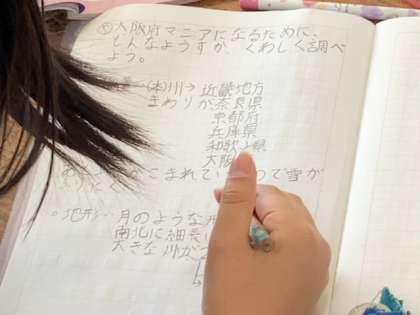 大阪府マニアになるために、
どんなようすか、くわしく調べ
よう。
近畿地方
まわりが奈良県
京都府
兵庫県
和歌山県
大阪
こまれてい で雪が
地形… 月のような
南北に細長
大きな川が